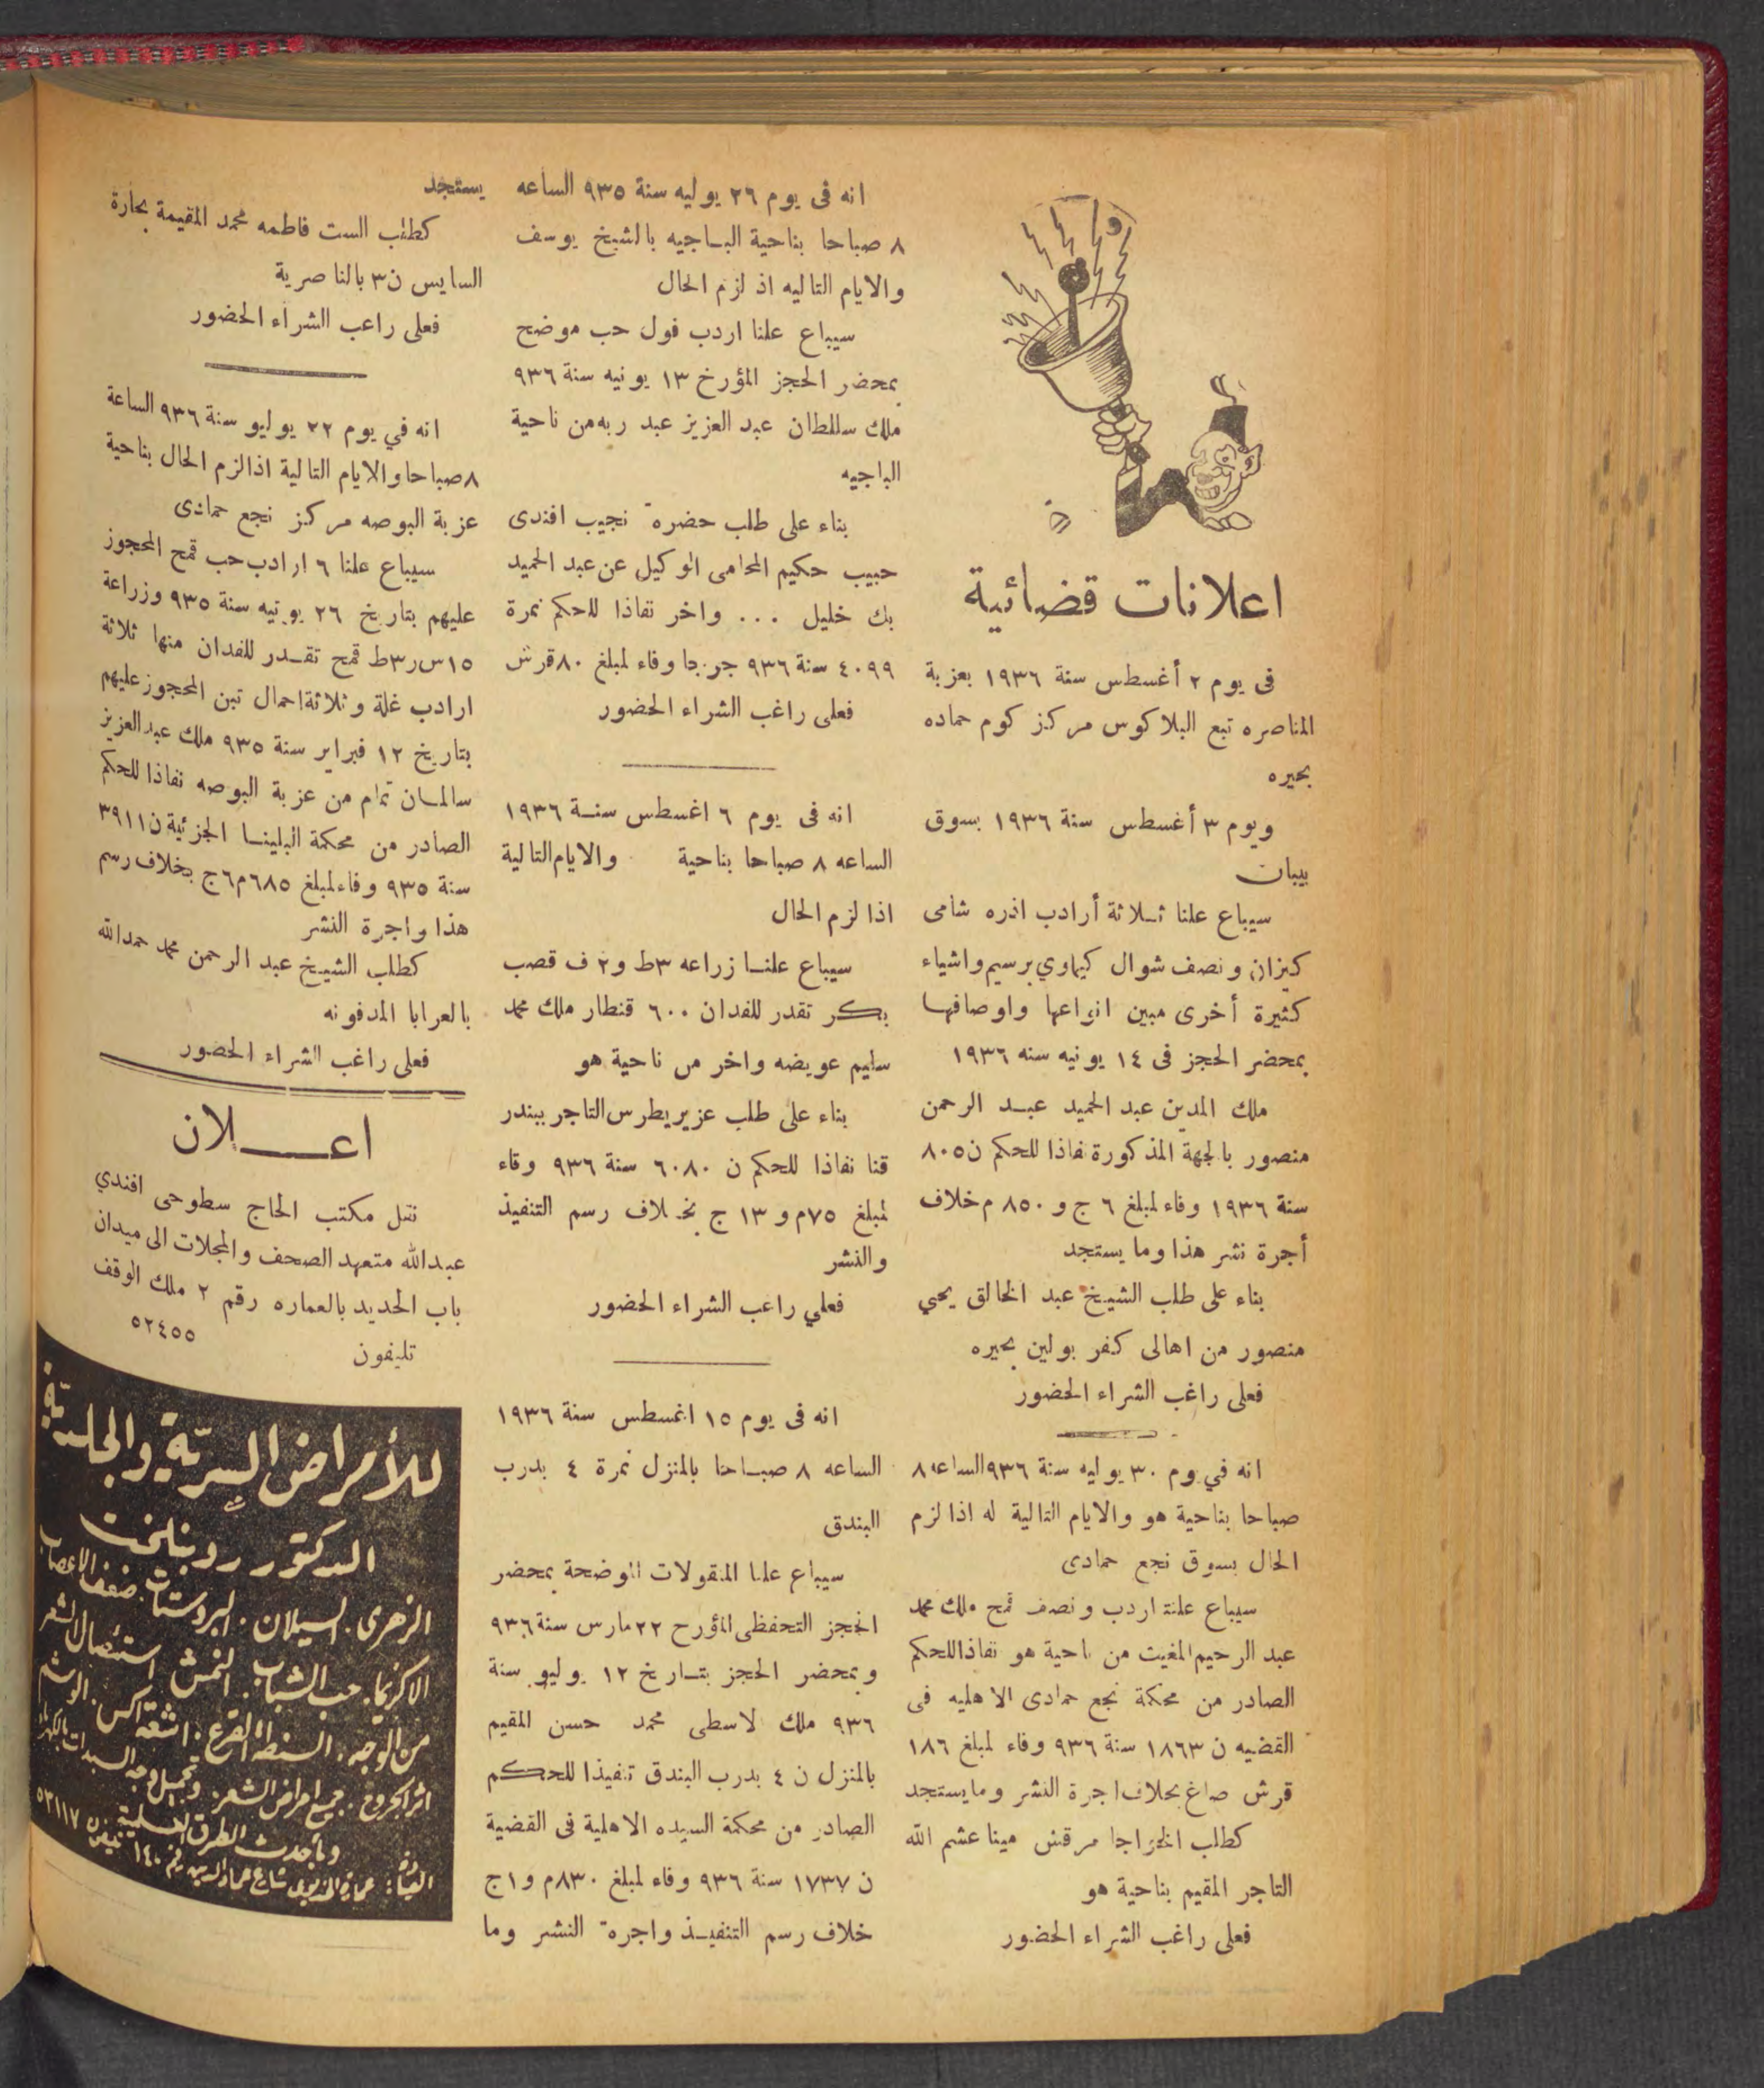 اعلانات قضائية
فى يوم ٢ أغسطس سنة ١٩٣٦ بعزبة
المناصره تبع البلاكوس مركز كوم حماده
بحيره
ويوم ٣ أغسطس سنة ١٩٣٦ بسوق
بيبان
سيباع علنا ثلاثة أرادب اذره شامى
كيزان ونصف شوال كيماوي برسيم واشياء
كثيرة أخرى مبين انواعها واوصافها
بمحضر الحجز فى ١٤ يونيه سنه ١٩٣٦
ملك المدين عبد الحميد عبد الرحمن
منصور بالجهة المذكورة نفاذا للحكم ن ٨٠٥
سنة ١٩٣٦ وفاء لمبلغ ٦ ج و ٨٥٠ م خلاف
أجرة نشر هذا وما يستجد
بناء على طلب الشيخ عبد الخالق يحي
منصور من اهالى كفر بولين بحيره
فعلى راغب الشراء الحضور
انه في يوم ٣٠ يوليه سنة ٩٣٦ الساعه ٨
صباحا بناحية هو والايام التالية له اذا لزم
الحال بسوق نجع حمادى
سيباع علنة اردب ونصف قمح ملك محمد
عبد الرحيم المغيت من ناحية هو نفاذا للحكم
الصادر من محكمة نجع حمادى الاهليه فى
القضيه ن ١٨٦٣ سنة ٩٣٦ وفاء لمبلغ ١٨٦
قرش صاغ بخلاف اجرة النشر وما يستجد
كطلب الخواجا مرقش مينا عشم الله
التاجر المقيم بناحية هو
فعلى راغب الشراء الحضور
انه فى يوم ٢٦ يوليه سنة ٩٣٥ الساعه
٨ صباحا بناحية الباجيه بالشيخ يوسف
والايام التاليه اذ لزم الحال
سيباع علنا اردب فول حب موضح
بمحضر الحجز المؤرخ ١٣ يونيه سنة ٩٣٦
ملك سلطان عبد العزيز عبد ربه من ناحية
الباجيه
بناء على طلب حضرة نجيب افندى
حبيب حكيم المحامى الوكيل عن عبد الحميد
بك خليل ... واخر نفاذا للحكم نمرة
٤٠٩٩ سنة ٩٣٦ جرجا وفاء لمبلغ ٨٠ قرش
فعلى راغب الشراء الحضور
انه فى يوم ٦ اغسطس سنة ١٩٣٦
الساعه ٨ صباحا بناحية والايام التالية
اذا لزم الحال
سيباع علنا زراعه ٣ط و٢ ف قصب
بكر تقدر للفدان ٦٠٠ قنطار ملك محمد
سليم عويضه واخر من ناحية هو
بناء على طلب عزيز بطرس التاجر ببندر
قنا نفاذا للحكم ن ٦٠٨٠ سنة ٩٣٦ وفاء
لمبلغ ٧٥م و ١٣ ج بخلاف رسم التنفيذ
والنشر
فعلي راغب الشراء الحضور
انه فى يوم ١٥ اغسطس سنة ١٩٣٦
الساعه ٨ صباحا بالمنزل نمرة ٤ بدرب
البندق
سيباع علنا المنقولات الموضحة بمحضر
الحجز التحفظى المؤرح ٢٢ مارس سنة ٩٣٦
وبمحضر الحجز بتاريخ ١٢ يوليو سنة
٩٣٦ ملك لاسطى محمد حسن المقيم
بالمنزل ن ٤ بدرب البندق تنفيذا للحكم
الصادر من محكمة السيده الاهلية فى القضية
ن ١٧٣٧ سنة ٩٣٦ وفاء لمبلغ ٨٣٠م و١ج
خلاف رسم التنفيذ واجرة النشر وما
يستجد
كطلب الست فاطمه محمد المقيمة بحارة
السايس ن ٣ بالناصرية
فعلى راعب الشراء الحضور
انه في يوم ٢٢ يوليو سنة ٩٣٦ الساعة
٨ صباحا والايام التالية اذا لزم الحال بناحية
عزبة البوصه مركز نجع حمادى
سيباع علنا ٦ ارادب حب قمح المحجوز
عليهم بتاريخ ٢٦ يونيه سنة ٩٣٥ وزراعة
١٥س ر٣ط قمح تقدر للفدان منها ثلاثة
ارادب غلة وثلاثة احمال تبن المحجوز عليهم
بتاريخ ١٢ فبراير سنة ٩٣٥ ملك عبد العزيز
سالمان تمام من عزبة البوصه نفاذا للحكم
الصادر من محكمة البلينا الجزئية ن ٣٩١١
سنة ٩٣٥ وفاء لمبلغ ٦٨٥م ٦ج بخلاف رسم
هذا واجرة النشر
كطلب الشيخ عبد الرحمن محمد حمد الله
بالعرابا المدفونه
فعلى راغب الشراء الحضور
اعـــلان
نقل مكتب الحاج سطوحى افندي
عبد الله متعهد الصحف والمجلات الى ميدان
باب الحديد بالعماره رقم ٢ ملك الوقف
تليفون ٥٢٤٥٥
للأمراض السرية والجلدية
الدكتور روبنلخت
الزهرى. السيلان. البروستات. ضعف الاعصاب
الاكزيما. حب الشباب. النمش استئصال الشعر
من الوجه. السنطة القرع. اشعة اكس. الوشم
اثر الجروح. جميع امراض الشعر. وتجميل وجه السيدات بالكهرباء
وبأحدث الطرق العلمية
العيادة: عمارة الخديوى شارع عماد الدين رقم ١٤٠ تليفون ٥٣١١٧